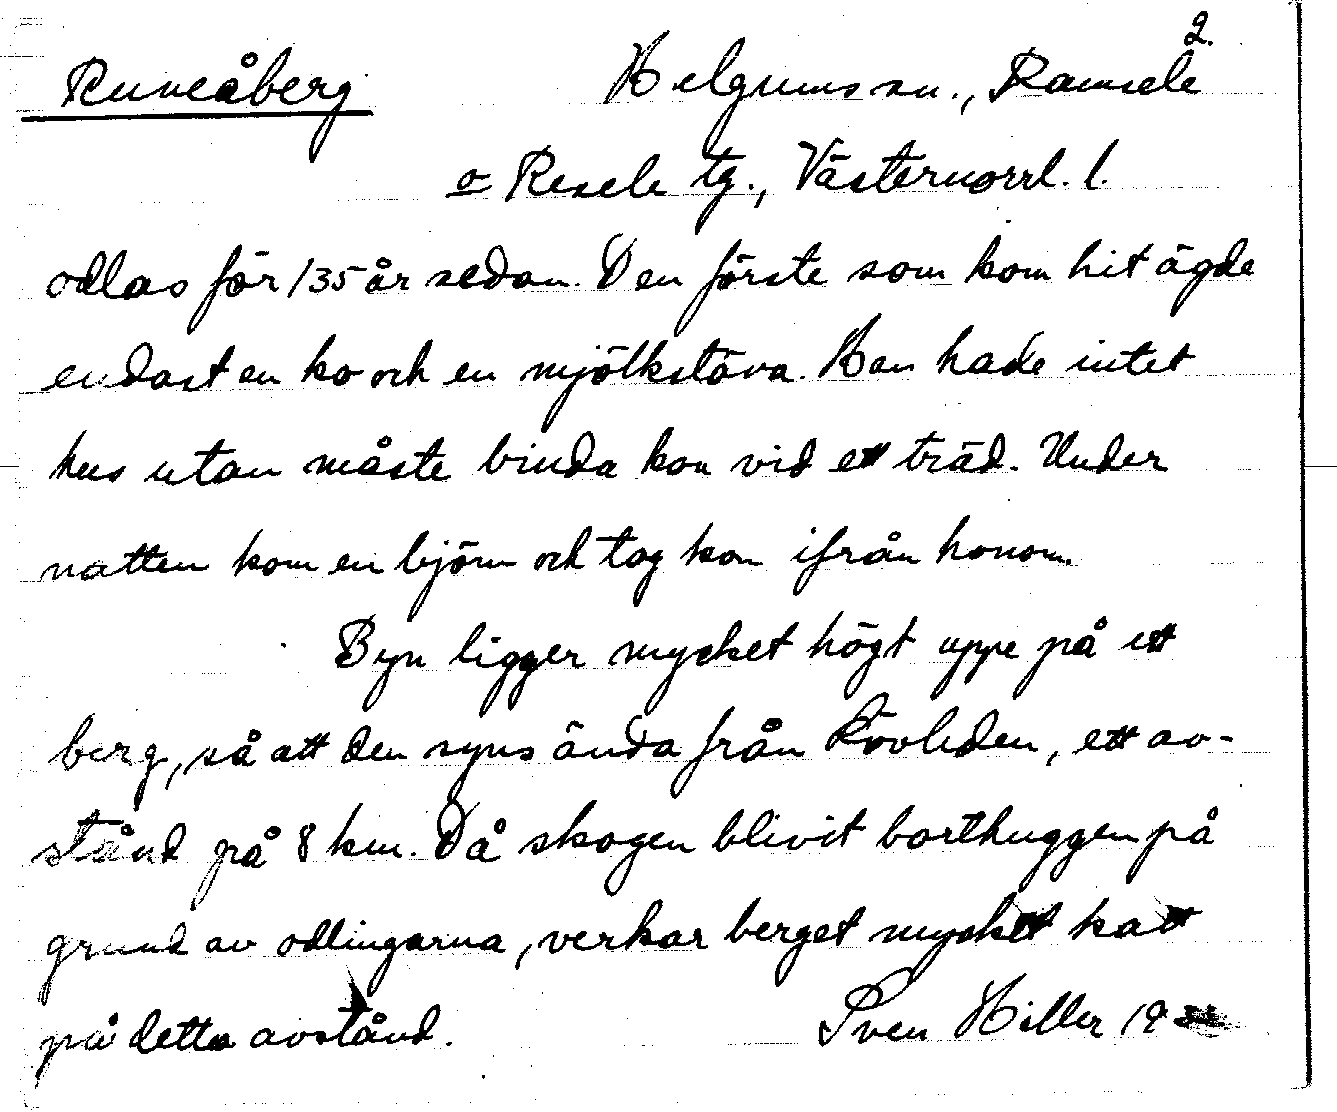 2.
Runeåberg Helgums sn., Ramsele
o Resele tg., Västernorrl. l.
odlas för 135 år sedan. Den förste som kom hit ägde
endast en ko och en mjölkstäva. Han hade intet
hus utan måste binda kon vid ett träd. Under
natten kom en björn och tog kon ifrån honom.
Byn ligger mycket högt uppe på ett
berg, så att den syns ända från Rävliden, ett av-
stånd på 8 km. Då skogen blivit borthuggen på
grund av odlingarna, verkar berget mycket katt
på detta avstånd. Sven Hiller 19